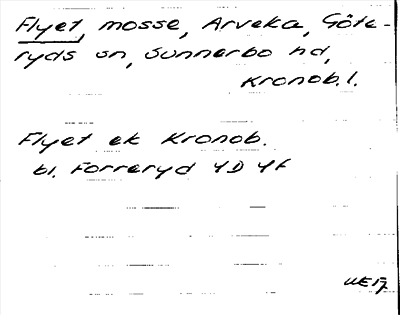 Flyet, mosse, Arveka, Göte-
ryds sn, Sunnerbo hd,
Kronob. l.
Flyet ek Kronob.
bl. Forreryd 4D 4f